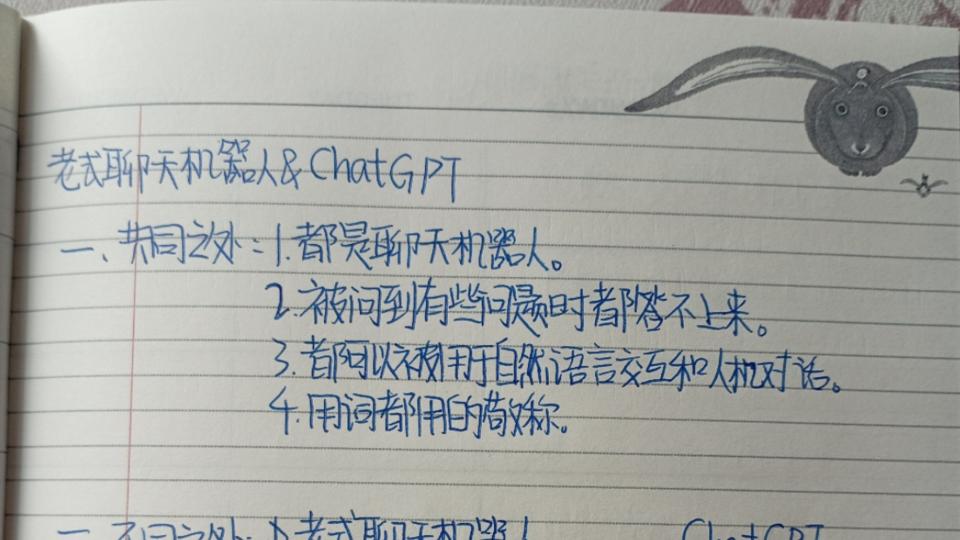 老式聊天机器人&ChatGPT
一、共同之处：1.都是聊天机器人。
2.被问到有些问题时都答不上来。
3.都可以被用于自然语言交互和人机对话。
4.用词都用的敬称。
不同之处：老式聊天机器人 ChatGPT